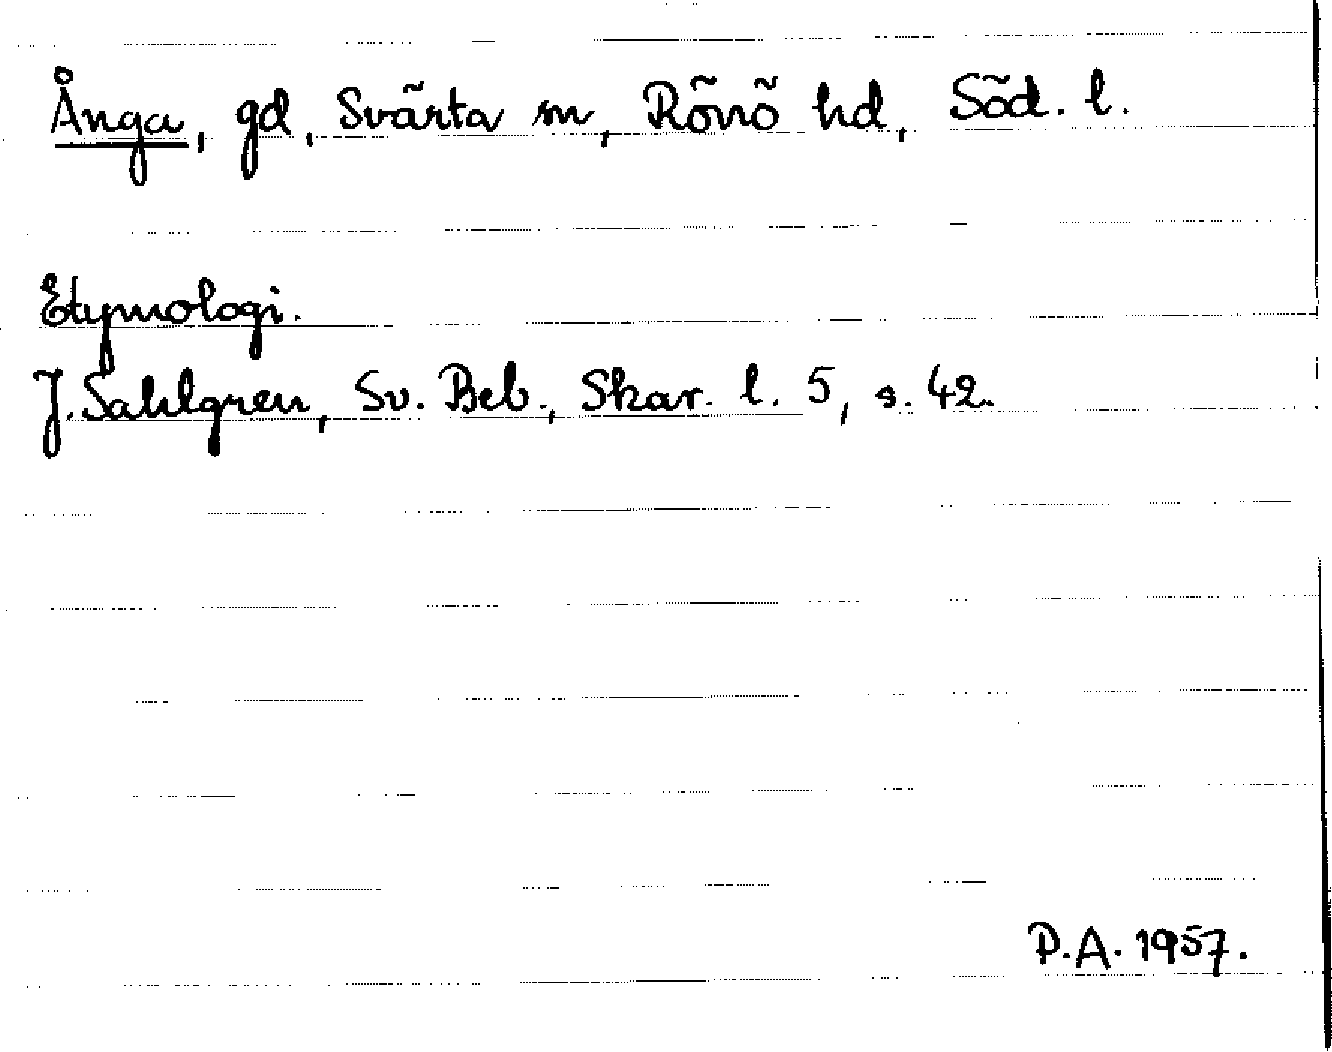 Ånga, gd, Svärta sn, Rönö hd, Söd. l.
Etymologi.
J. Sahlgren, Sv. Beb., Skar. l. 5, s. 42.
P.A. 1957.